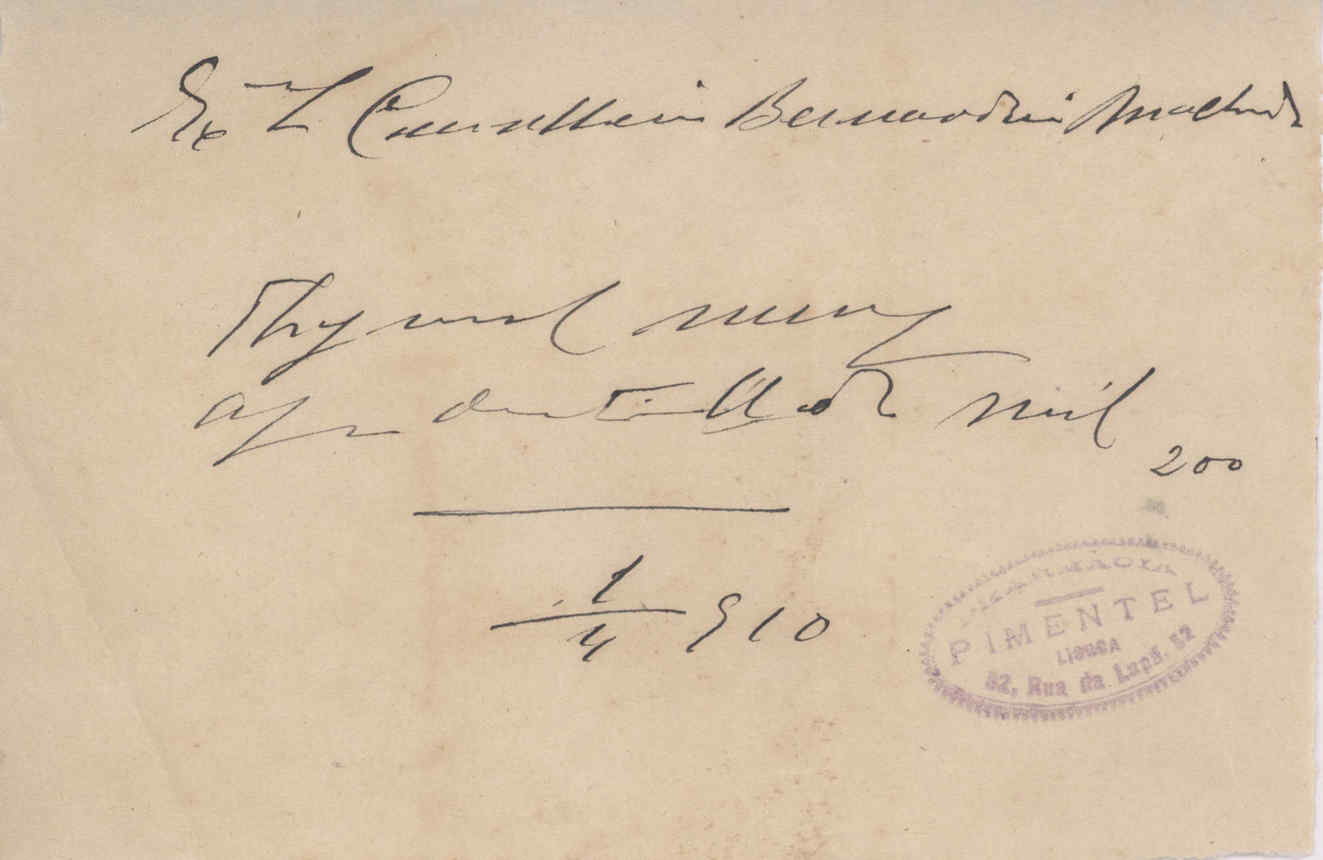 Exmo Conselheiro Bernardino Machado
Thymol
agua destillada mil
200
1/4 910
PHARMACIA
PIMENTEL
LISBOA
82, Rua da Lapa, 82